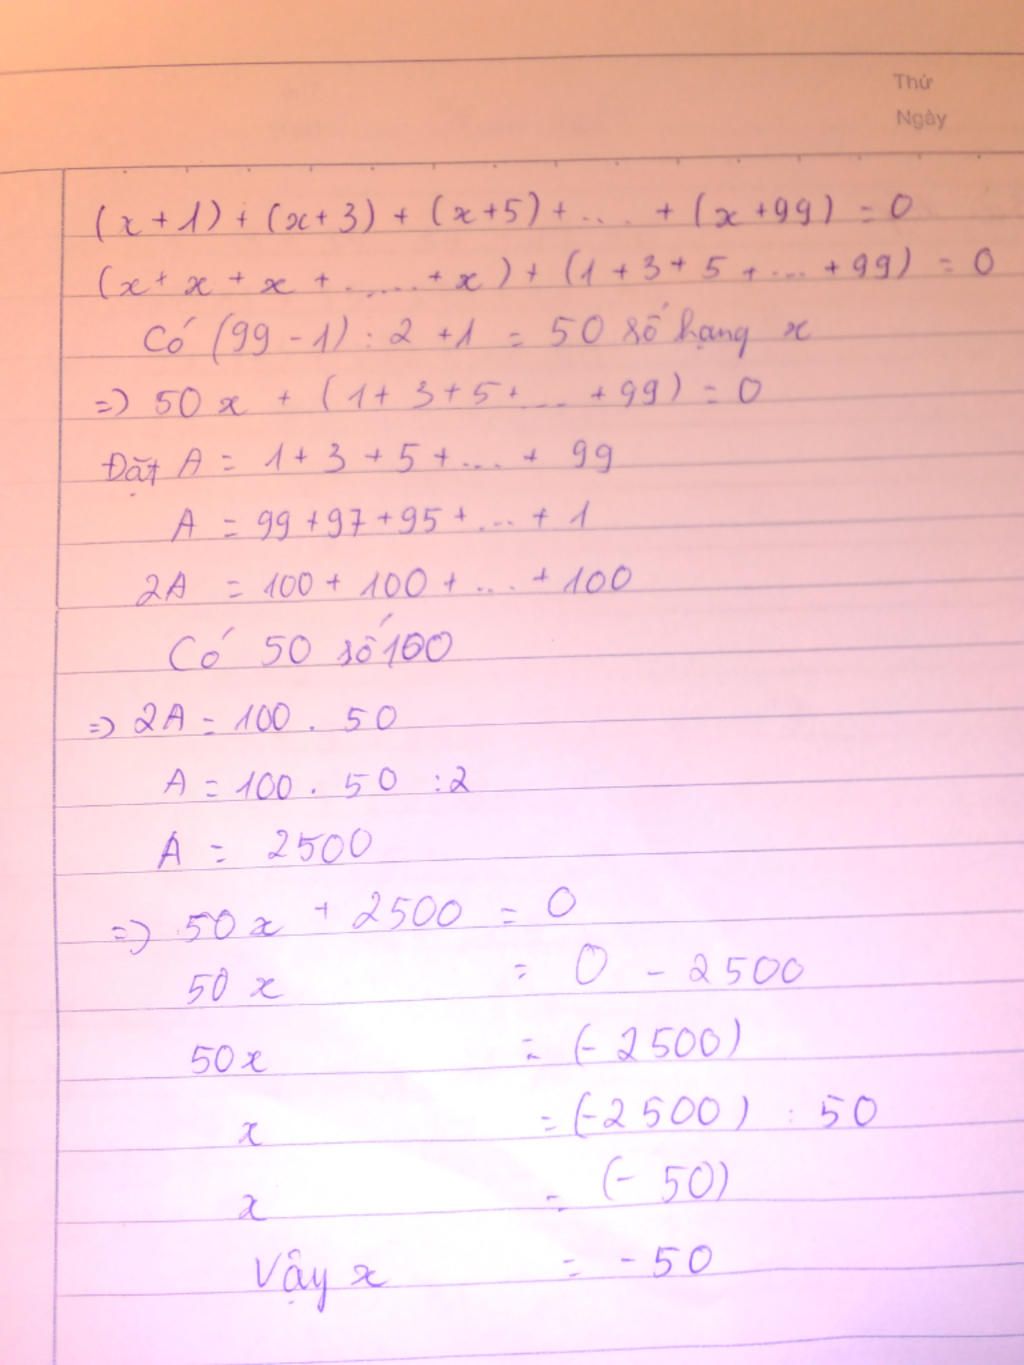 Thứ
Ngày
(x + 1) + (x + 3) + (x + 5) + .... + (x + 99) = 0
(x + x + x + ...... + x) + (1 + 3 + 5 + ... + 99) = 0
Có (99 - 1) : 2 + 1 = 50 số hạng x
=> 50x + (1 + 3 + 5 + ... + 99) = 0
Đặt A = 1 + 3 + 5 + ... + 99
A = 99 + 97 + 95 + ... + 1
2A = 100 + 100 + ... + 100
Có 50 số 100
=> 2A = 100 . 50
A = 100 . 50 : 2
A = 2500
=> 50x + 2500 = 0
50x = 0 - 2500
50x = (- 2500)
x = (-2500) : 50
x = (- 50)
Vậy x = - 50